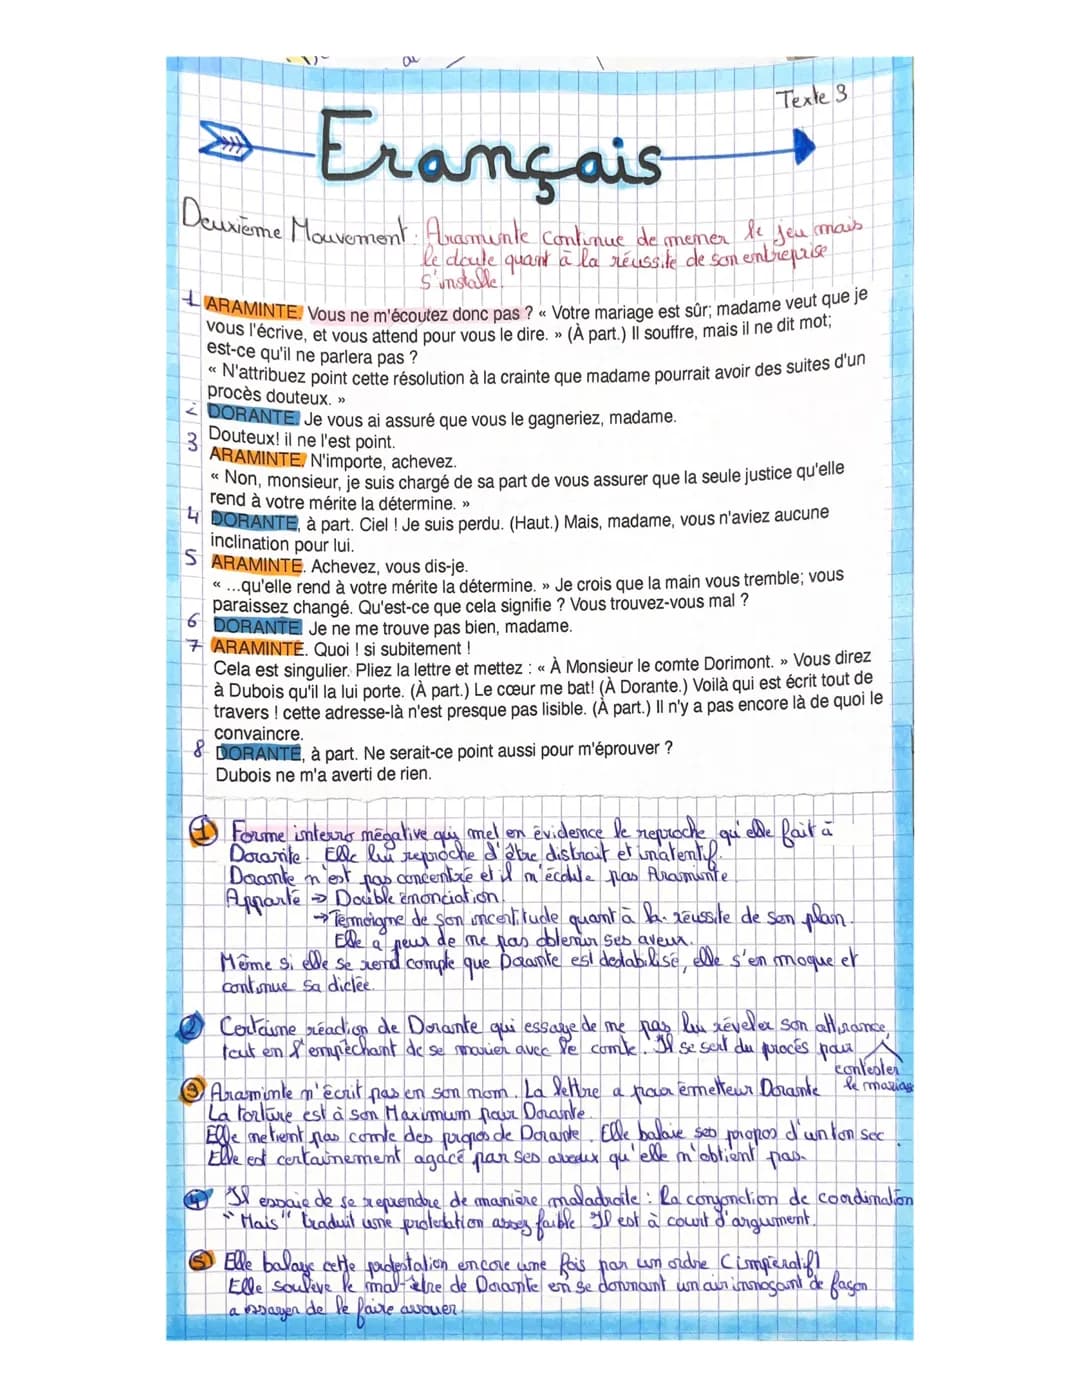 Texte 3
Français
Deuxième Mouvement : Araminte continue de mener le jeu mais
le doute quant à la réussite de son entreprise
s'installe.
1 ARAMINTE. Vous ne m'écoutez donc pas ? « Votre mariage est sûr; madame veut que je
vous l'écrive, et vous attend pour vous le dire. » (À part.) Il souffre, mais il ne dit mot;
est-ce qu'il ne parlera pas ?
« N'attribuez point cette résolution à la crainte que madame pourrait avoir des suites d'un
procès douteux. »
2 DORANTE. Je vous ai assuré que vous le gagneriez, madame.
Douteux! il ne l'est point.
3 ARAMINTE. N'importe, achevez.
« Non, monsieur, je suis chargé de sa part de vous assurer que la seule justice qu'elle
rend à votre mérite la détermine. »
4 DORANTE, à part. Ciel ! Je suis perdu. (Haut.) Mais, madame, vous n'aviez aucune
inclination pour lui.
5 ARAMINTE. Achevez, vous dis-je.
« ...qu'elle rend à votre mérite la détermine. » Je crois que la main vous tremble; vous
paraissez changé. Qu'est-ce que cela signifie ? Vous trouvez-vous mal ?
6 DORANTE. Je ne me trouve pas bien, madame.
7 ARAMINTE. Quoi ! si subitement !
Cela est singulier. Pliez la lettre et mettez : « À Monsieur le comte Dorimont. » Vous direz
à Dubois qu'il la lui porte. (À part.) Le cœur me bat! (À Dorante.) Voilà qui est écrit tout de
travers ! cette adresse-là n'est presque pas lisible. (À part.) Il n'y a pas encore là de quoi le
convaincre.
8 DORANTE, à part. Ne serait-ce point aussi pour m'éprouver ?
Dubois ne m'a averti de rien.
1 Forme interro négative qui met en évidence le reproche qu'elle fait à
Dorante. Elle lui reproche d'être distrait et inatentif.
Dorante n'est pas concentré et il n'écoute pas Araminte
Apparté → Double énonciation.
→ Témoigne de son incertitude quant à la réussite de son plan.
Elle a peur de ne pas obtenir ses aveux.
Même si elle se rend compte que Dorante est destabilisé, elle s'en moque et
continue sa dictée.
2 Certaine réaction de Dorante qui essaye de ne pas lui réveler son attirance,
tout en l'empêchant de se marier avec le comte. Il se sert du procès pour
contester
le mariage
3 Araminte n'écrit pas en son nom. La lettre a pour émetteur Dorante
La torture est à son Maximum pour Dorante.
Elle ne tient pas comte des propos de Dorante. Elle balaie ses propos d'un ton sec
Elle est certainement agacé par ses aveux qu'elle n'obtient pas.
4 Il essaie de se reprendre de manière maladroite : la conjonction de coordination
"Mais" traduit une protestation assez faible Il est à court d'argument.
5 Elle balaye cette protestation encore une fois par un ordre (impératif)
Elle soulève le mal-être de Dorante en se donnant un air innoçant de façon
a essayer de le faire avouer.